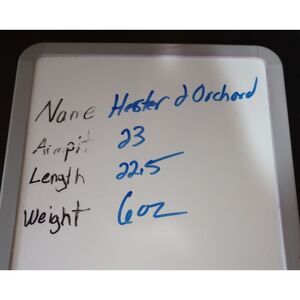 Name Hester & Orchard
Armpit 23
Length 22.5
Weight 6oz